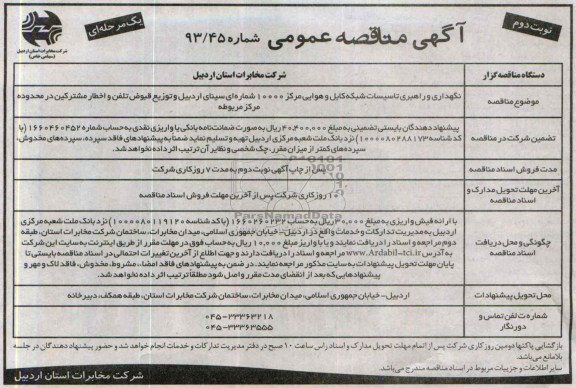 نوبت دوم
آگهی مناقصه عمومی شماره ۹۳/۴۵
یک مرحله‌ای
شرکت مخابرات استان اردبیل
(سهامی خاص)
دستگاه مناقصه گزار
شرکت مخابرات استان اردبیل
موضوع مناقصه
نگهداری و راهبری تاسیسات شبکه کابل و هوایی مرکز ۱۰۰۰۰ شماره ای سینای اردبیل و توزیع قبوض تلفن و اخطار مشترکین در محدوده
مرکز مربوطه
تضمین شرکت در مناقصه
پیشنهاد دهندگان بایستی تضمینی به مبلغ ۴۰،۴۰۰،۰۰۰ ریال به صورت ضمانت‌نامه بانکی یا واریزی نقدی به حساب شماره ۱۶۶۰۴۶۰۴۵۲ (با
کد شناسه ۱۰۰۰۰۰۸۰۴۸۸۱۷۳) نزد بانک ملت شعبه مرکزی اردبیل تهیه و تسلیم نماید ضمناً به پیشنهادهای فاقد سپرده، سپرده‌های مخدوش،
سپرده‌های کمتر از میزان مقرر، چک شخصی و نظایر آن ترتیب اثر داده نخواهد شد.
مدت فروش اسناد مناقصه
پس از چاپ آگهی نوبت دوم به مدت ۷ روز کاری شرکت
آخرین مهلت تحویل مدارک و
اسناد مناقصه
۱۰ روز کاری شرکت پس از آخرین مهلت فروش اسناد مناقصه
چگونگی و محل دریافت
اسناد مناقصه
با ارائه فیش واریزی به مبلغ ۳۰۰،۰۰۰ ریال به حساب ۱۶۶۰۲۶۰۲۳۲ (با کد شناسه ۱۰۰۰۰۸۰۱۱۹۱۲۰) نزد بانک ملت شعبه مرکزی
اردبیل به مدیریت تدارکات و خدمات واقع در اردبیل – خیابان جمهوری اسلامی، میدان مخابرات، ساختمان شرکت مخابرات استان، طبقه
دوم مراجعه و اسناد را دریافت نمایند و یا با واریز مبلغ ۱۰،۰۰۰ ریال به حساب فوق در مهلت مقرر از طریق اینترنت به سایت این شرکت
به آدرس www.Ardabil-tci.ir مراجعه و اسناد را دریافت دارند و جهت اطلاع از آخرین تغییرات احتمالی در اسناد مناقصه بایستی تا
پایان مهلت تحویل پیشنهادات به سایت مذکور مراجعه نمایند. در ضمن به پیشنهادهای فاقد امضاء، مشروط، مخدوش، فاقد لاک و مهر و
پیشنهادهایی که بعد از انقضای مدت مقرر واصل شود مطلقاً ترتیب اثر داده نخواهد شد.
محل تحویل پیشنهادات
اردبیل- خیابان جمهوری اسلامی، میدان مخابرات، ساختمان شرکت مخابرات استان، طبقه همکف، دبیرخانه
شماره تلفن تماس و
دورنگار
۰۴۵-۳۳۳۶۳۲۱۸
۰۴۵-۳۳۳۶۳۵۵۵
بازگشایی پاکتها دومین روز کاری شرکت پس از اتمام مهلت تحویل مدارک و اسناد راس ساعت ۱۰ صبح در دفتر مدیریت تدارکات و خدمات انجام خواهد شد و حضور پیشنهاد دهندگان در جلسه
بلامانع می‌باشد.
سایر اطلاعات و جزییات مربوط در اسناد مناقصه مندرج می‌باشد.
شرکت مخابرات استان اردبیل
ParsNamadData